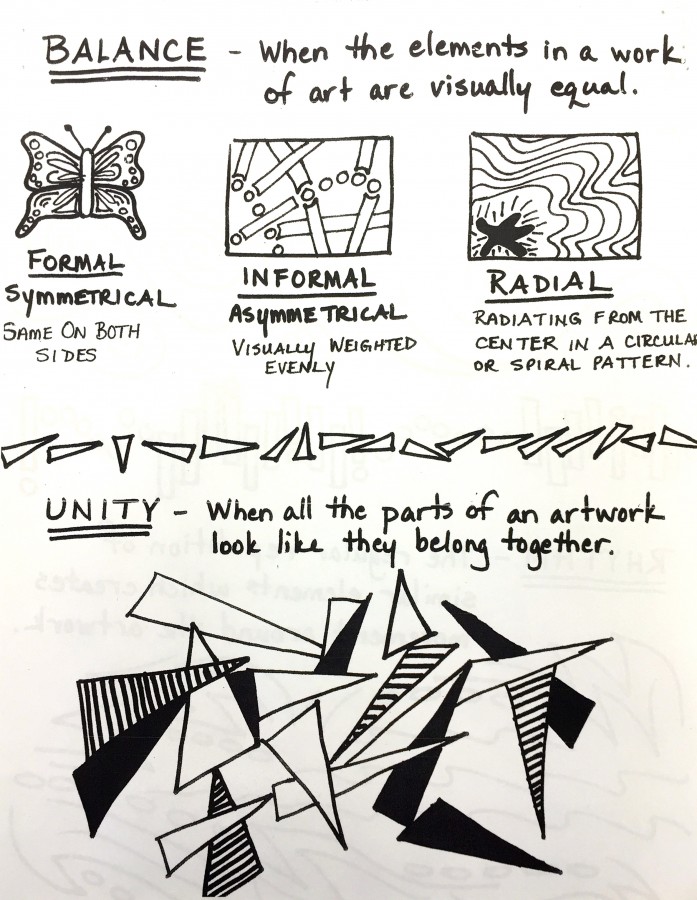 BALANCE - When the elements in a work
of art are visually equal.
FORMAL
SYMMETRICAL
SAME ON BOTH
SIDES
INFORMAL
ASYMMETRICAL
VISUALLY WEIGHTED
EVENLY
RADIAL
RADIATING FROM THE
CENTER IN A CIRCULAR
OR SPIRAL PATTERN.
UNITY - When all the parts of an artwork
look like they belong together.